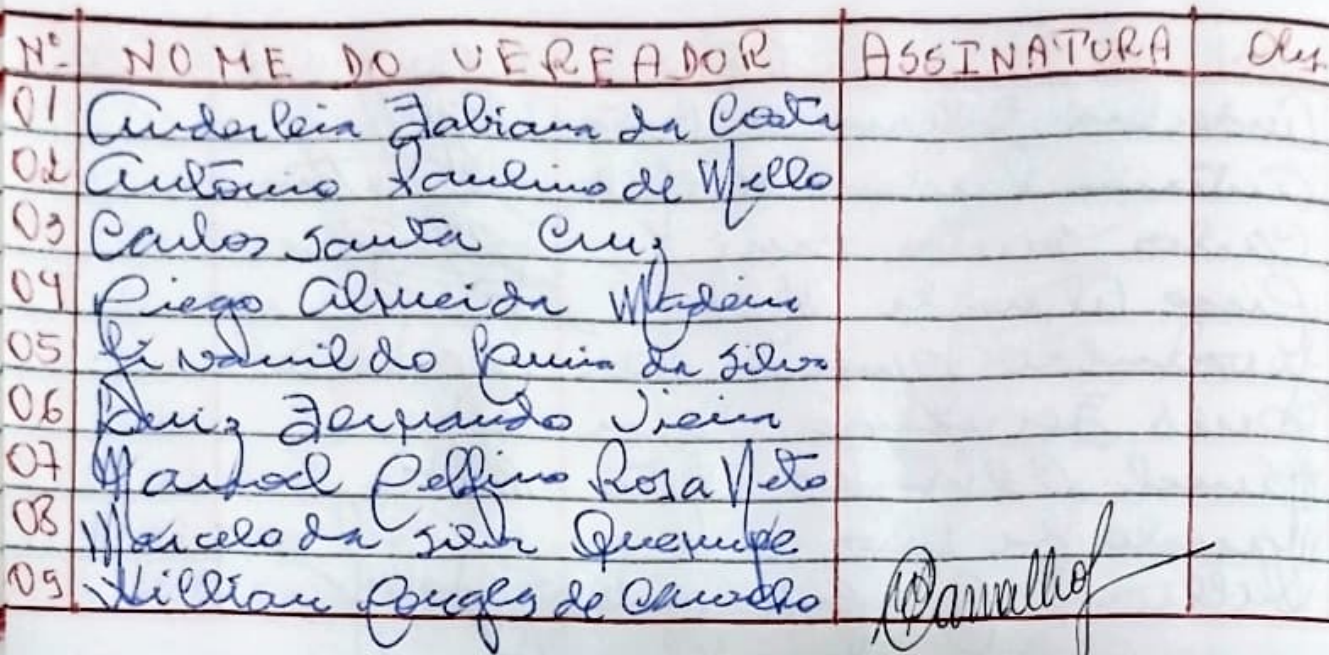 Nº NOME DO VEREADOR ASSINATURA Obs
01 Anderleia Fabiana da Costa
02 Antônio Paulino de Mello
03 Carlos Santa Cruz
04 Diego Almeida Madeira
05 Givanildo da Silva
06 Luiz Fernando Vieira
07 Manoel Delfino Rosa Neto
08 Marcelo da Silva
09 Willian de Carvalho Carvalho